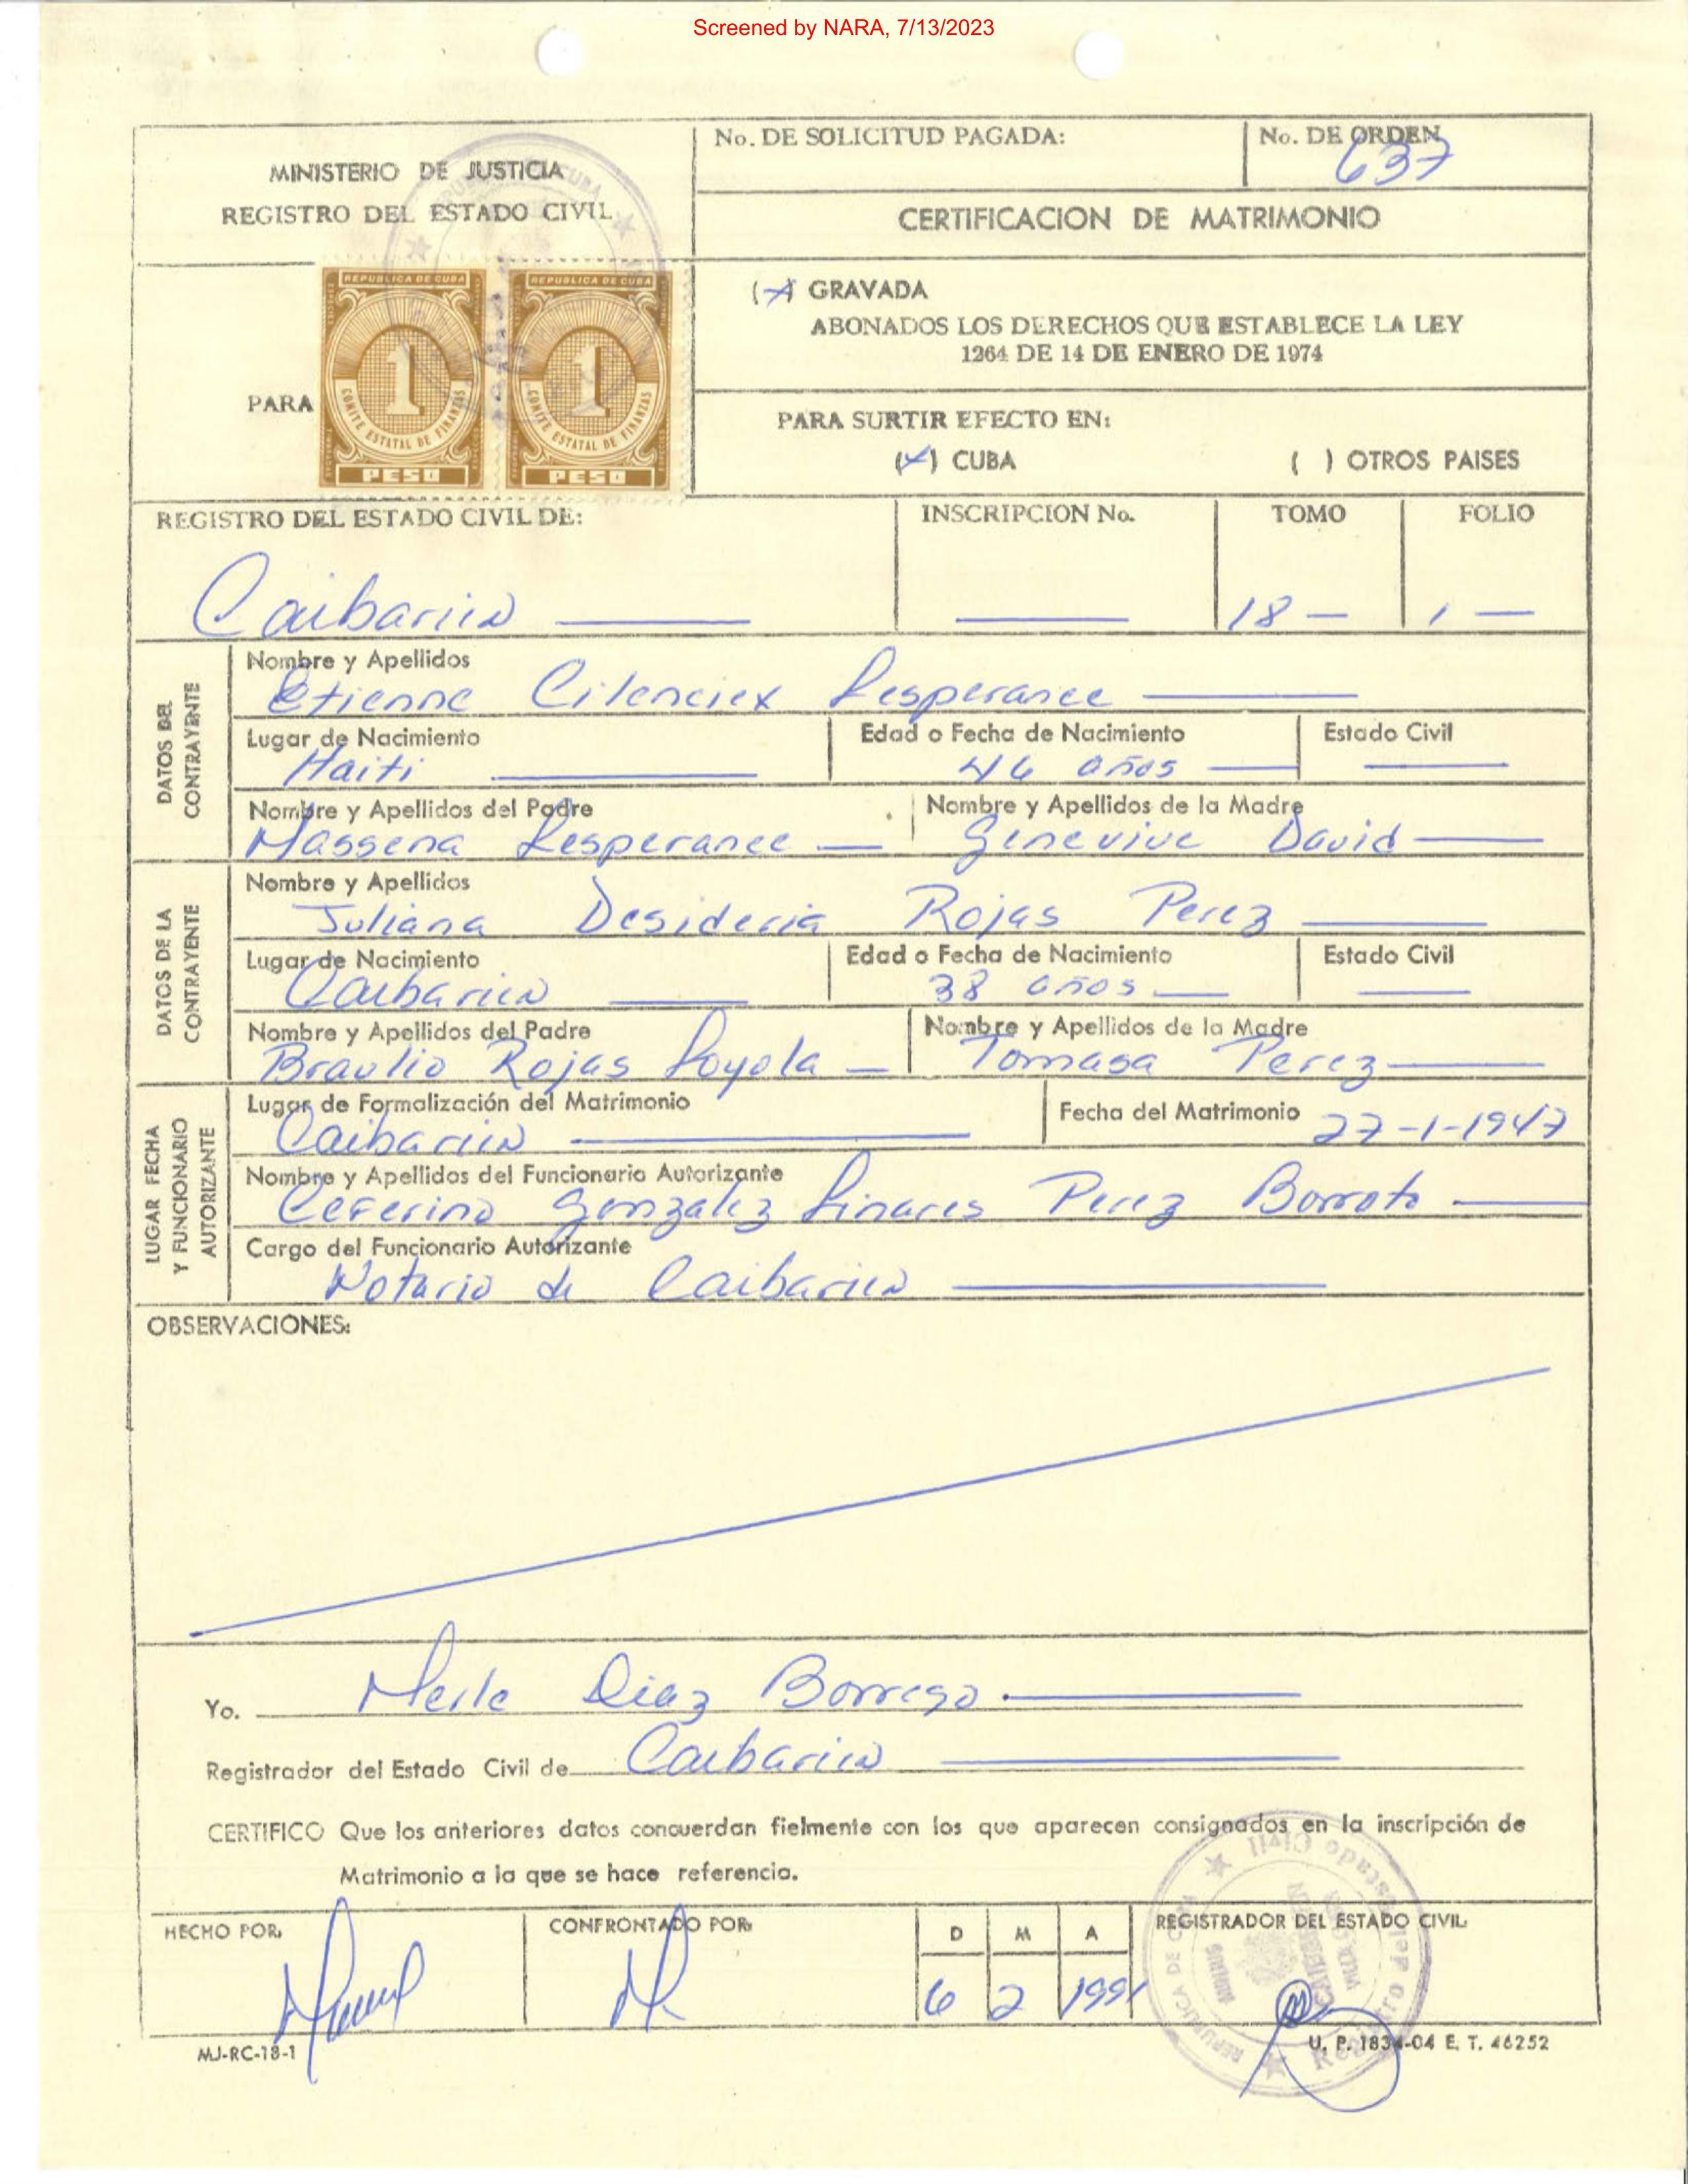 Screened by NARA, 7/13/2023
MINISTERIO DE JUSTICIA
REGISTRO DEL ESTADO CIVIL
No. DE SOLICITUD PAGADA:
No. DE ORDEN
637
CERTIFICACION DE MATRIMONIO
PARA
REPUBLICA DE CUBA
1
COMITE ESTATAL DE FINANZAS
PESO
REPUBLICA DE CUBA
1
COMITE ESTATAL DE FINANZAS
PESO
(X) GRAVADA
ABONADOS LOS DERECHOS QUE ESTABLECE LA LEY
1264 DE 14 DE ENERO DE 1974
PARA SURTIR EFECTO EN:
(X) CUBA ( ) OTROS PAISES
REGISTRO DEL ESTADO CIVIL DE:
Caibarien
INSCRIPCION No.
TOMO
18 —
FOLIO
1 —
DATOS DEL
CONTRAYENTE
Nombre y Apellidos
Etienne Cilenciex Lesperance
Lugar de Nacimiento
Haiti
Edad o Fecha de Nacimiento
46 años
Estado Civil
Nombre y Apellidos del Padre
Massena Lesperance
Nombre y Apellidos de la Madre
Genevive David
DATOS DE LA
CONTRAYENTE
Nombre y Apellidos
Juliana Desideria Rojas Perez
Lugar de Nacimiento
Caibarien
Edad o Fecha de Nacimiento
38 años
Estado Civil
Nombre y Apellidos del Padre
Braulio Rojas Loyola
Nombre y Apellidos de la Madre
Tomasa Perez
LUGAR FECHA
Y FUNCIONARIO
AUTORIZANTE
Lugar de Formalización del Matrimonio
Caibarien
Fecha del Matrimonio 27-1-1947
Nombre y Apellidos del Funcionario Autorizante
Ceferino Gonzalez Linares Perez Borroto
Cargo del Funcionario Autorizante
Notario de Caibarien
OBSERVACIONES:
Yo. Merle Diaz Borrego.
Registrador del Estado Civil de Caibarien
CERTIFICO Que los anteriores datos concuerdan fielmente con los que aparecen consignados en la inscripción de
Matrimonio a la que se hace referencia.
HECHO POR:
CONFRONTADO POR:
D M A
6 2 1991
REGISTRADOR DEL ESTADO CIVIL
Registro del Estado Civil
REPUBLICA DE CUBA
MJ-RC-13-1
U. P. 1834-04 E. T. 46252